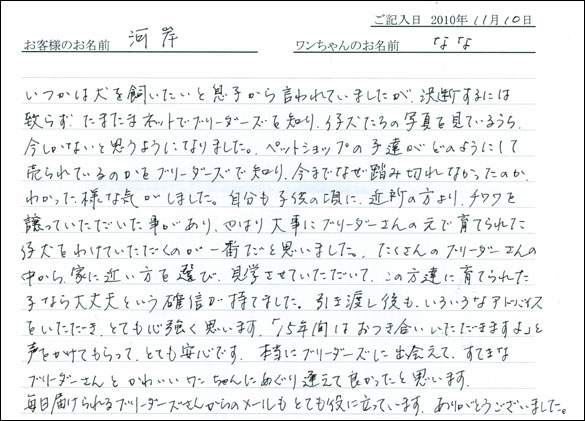 ご記入日 2010年 11月 10日
お客様のお名前 河岸 ワンちゃんのお名前 なな
いつかは犬を飼いたいと息子から言われていましたが、決断するには
致らず、たまたまネットでブリーダーズを知り、仔犬たちの写真を見ているうち、
今しかないと思うようになりました。ペットショップの子達がどのようにして
売られているのかをブリーダーズで知り、今までなぜ踏み切れなかったのか、
わかった様な気がしました。自分も子供の頃に、近所の方より、チワワを
譲っていただいた事があり、やはり大事にブリーダーさんの元で育てられた
仔犬をわけていただくのが一番だと思いました。たくさんのブリーダーさんの
中から、家に近い方を選び、見学させていただいて、この方達に育てられた
子なら大丈夫という確信が持てました。引き渡し後も、いろいろなアドバイス
をいただき、とても心強く思います。「15年間はおつき合いいただきますよ」と
声をかけてもらって、とても安心です。本当にブリーダーズに出会えて、すてきな
ブリーダーさんとかわいいワンちゃんにめぐり逢えて良かったと思います。
毎日届けられるブリーダーズさんからのメールもとても役に立っています。ありがとうございました。